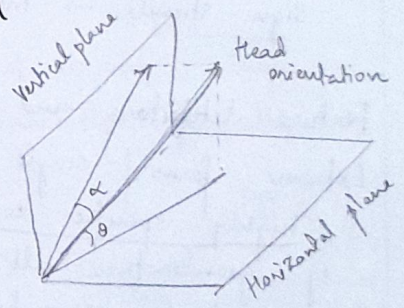 Vertical plane
Head
orientation
α
θ
Horizontal plane